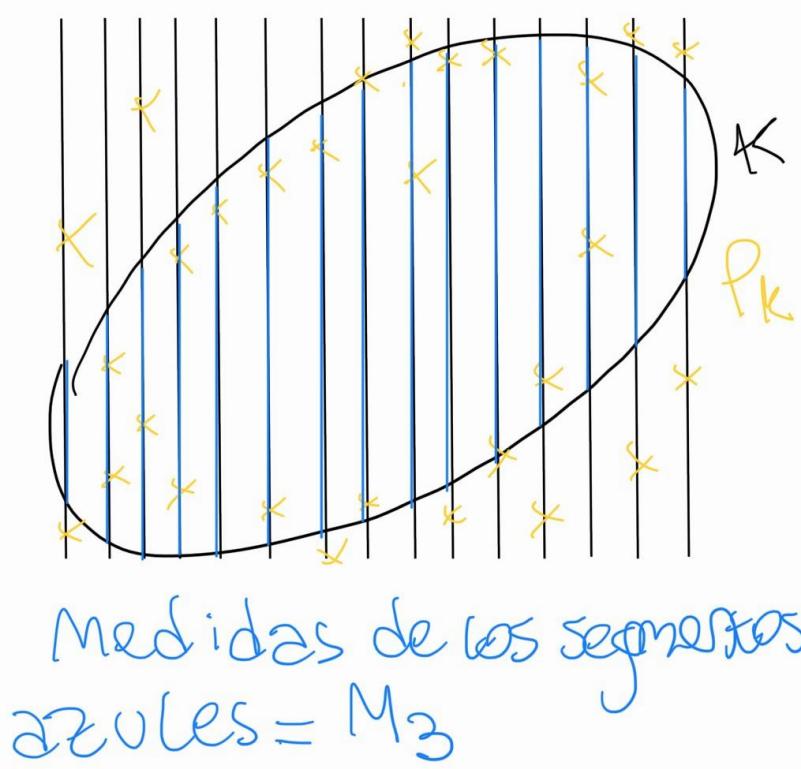 K
P_k
Medidas de los segmentos
azules = M_3